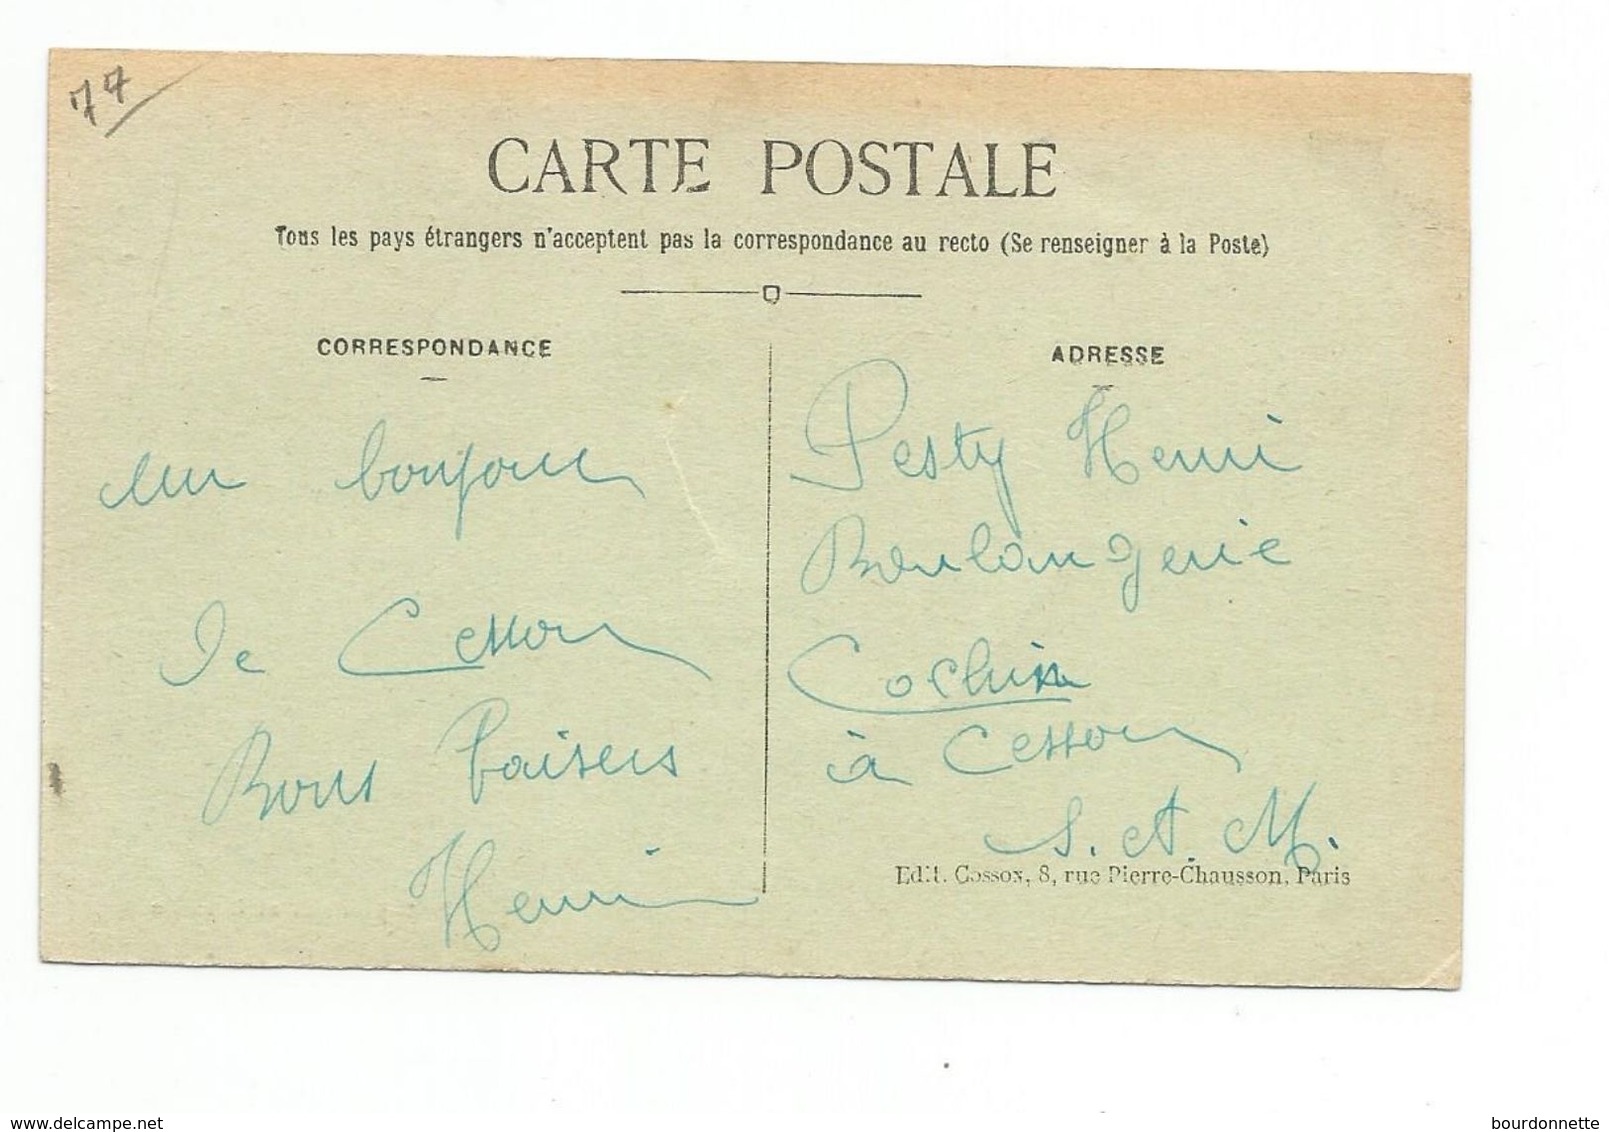 77
CARTE POSTALE
Tous les pays étrangers n'acceptent pas la correspondance au recto (Se renseigner à la Poste)
CORRESPONDANCE
un bonjour
de Cesson
Bons baisers
Henri
ADRESSE
Pesty Henri
Boulangerie
Cochin
à Cesson
S. et. M.
Edit. Cosson, 8, rue Pierre-Chausson, Paris
www.delcampe.net
bourdonnette